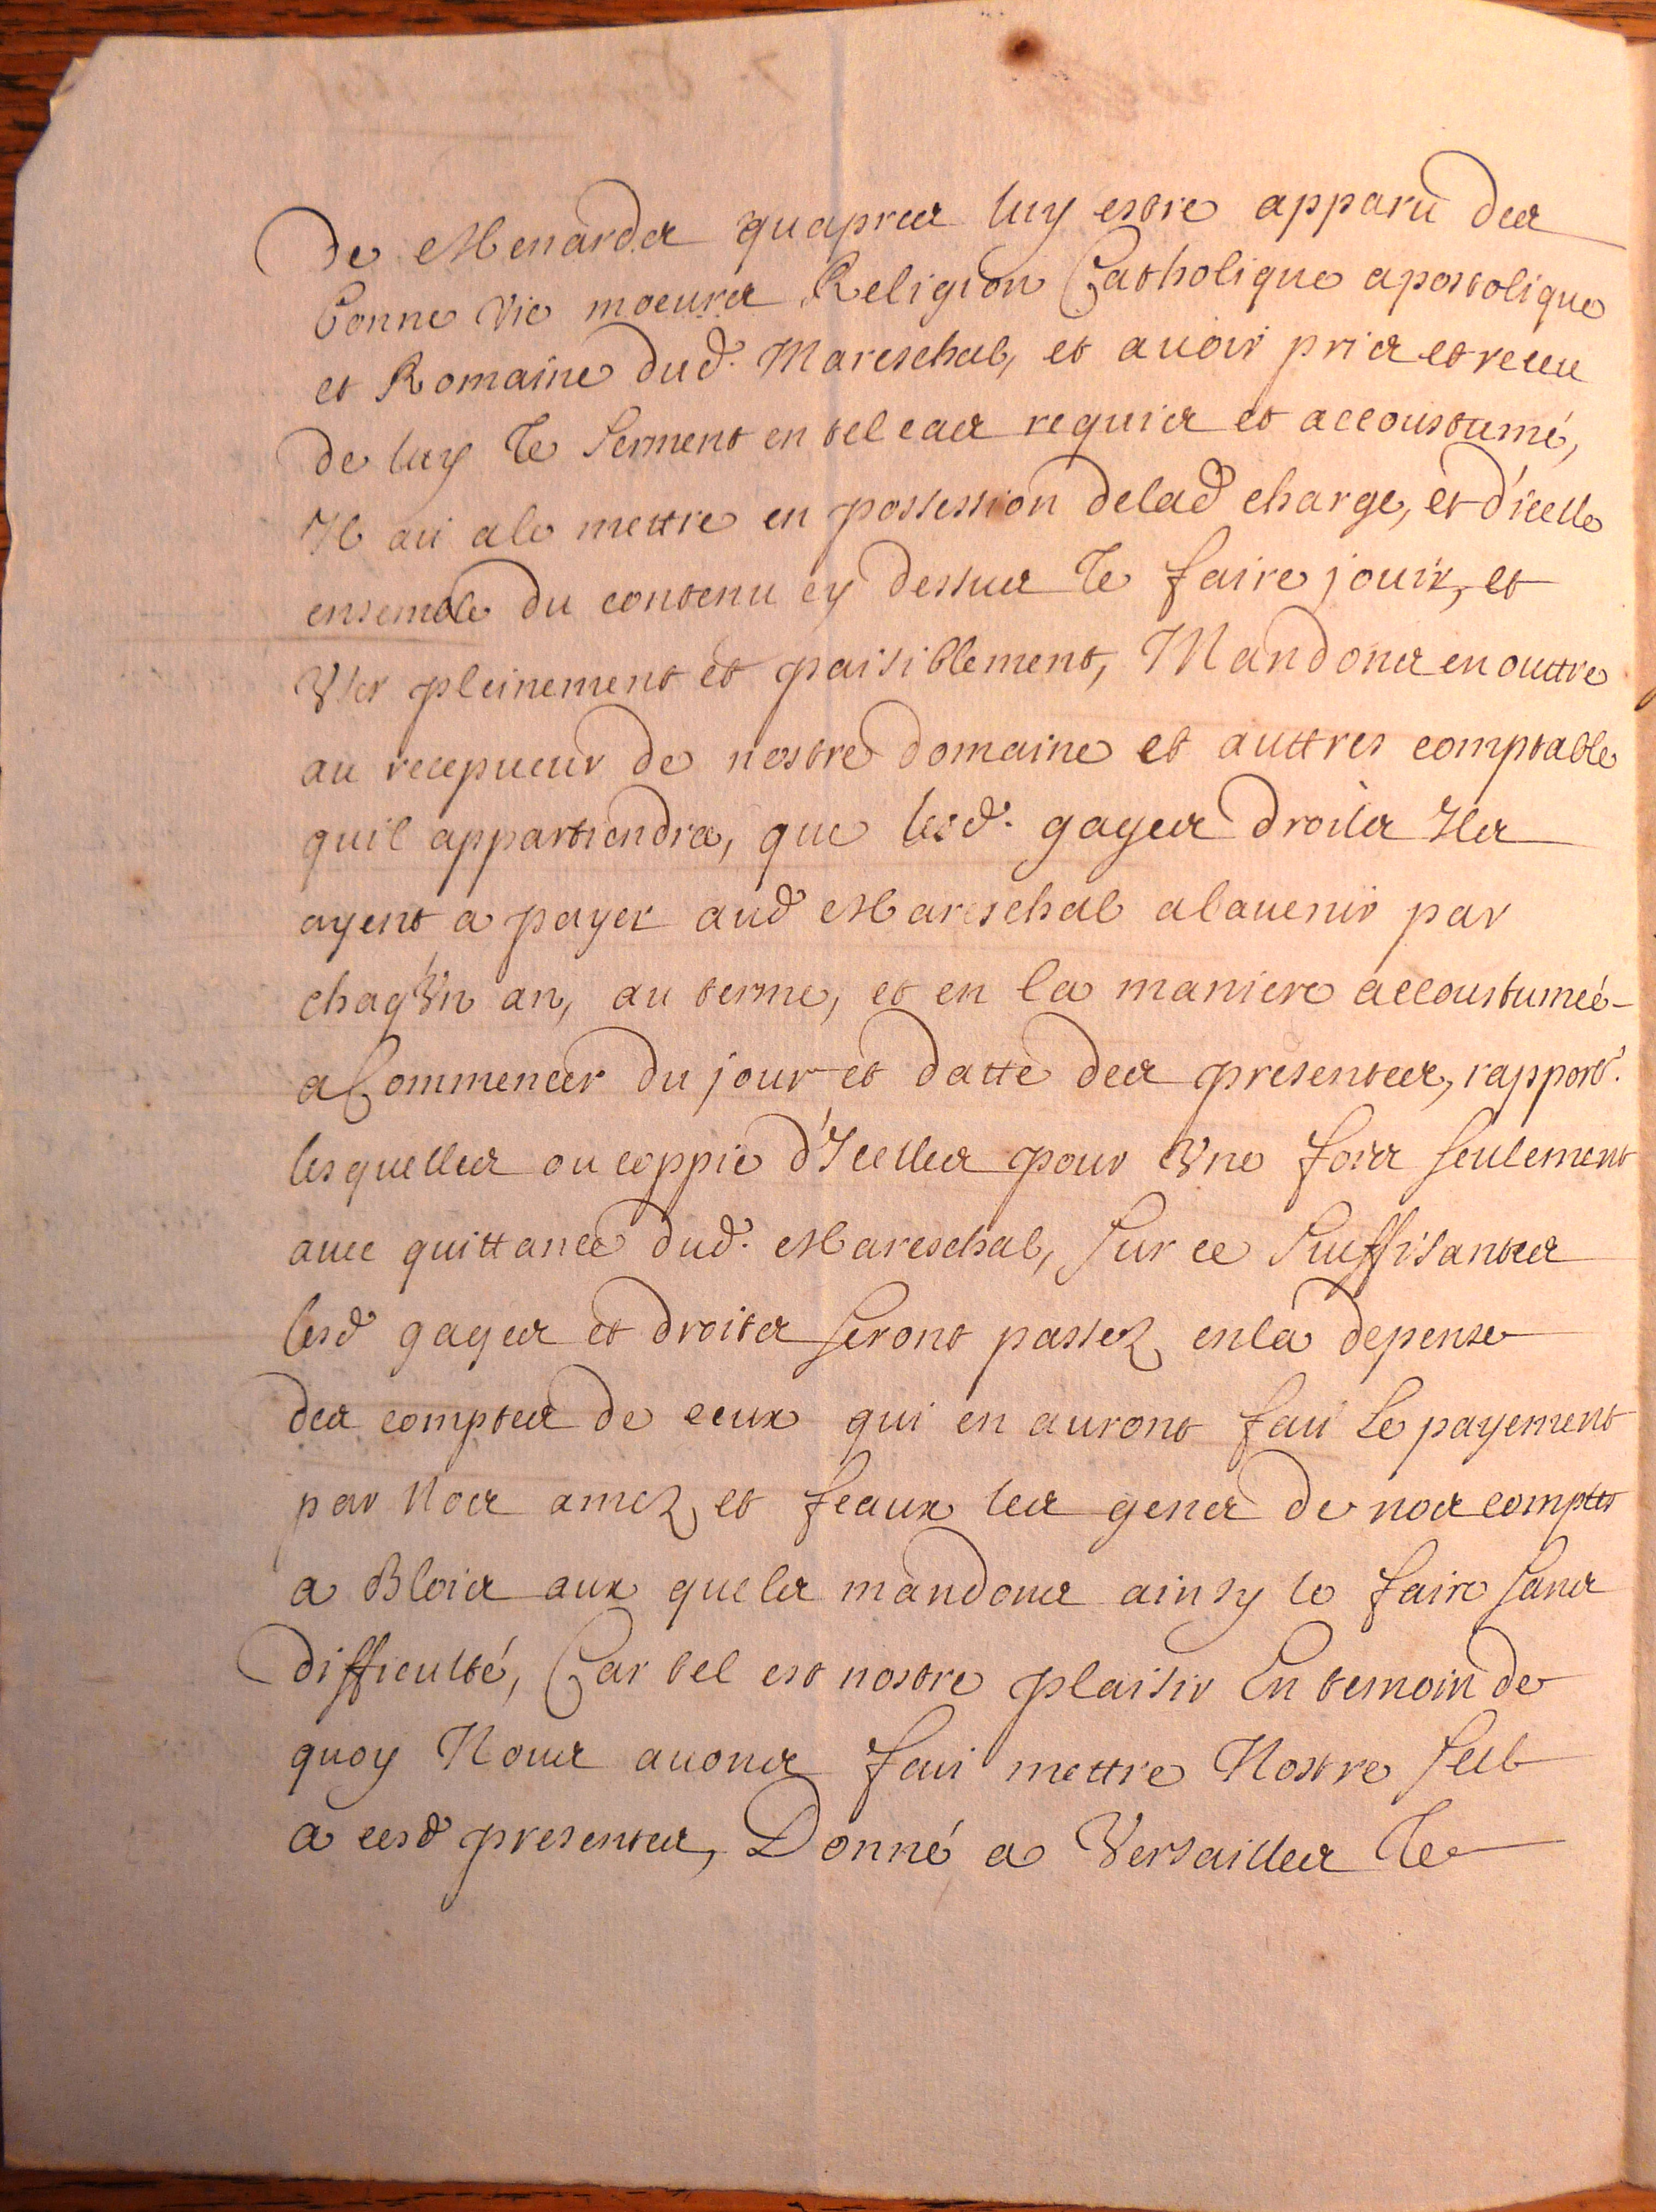 de Menards quapres luy estre apparu des
bonne vie moeurs Religion Catholique apostolique
et Romaine dud. Mareschal, et auoir pris et receu
de luy le serment en tel cas requis et accoustumé,
Il ait a le mettre en possession delad charge, et d'icelle
ensemble du contenu cy dessus le faire jouir, et
Vser pleinement et paisiblement, Mandons en outtre
au recepueur de nostre domaine et auttres comptable
quil appartiendra, que lesd. gages droits Ils
ayent a payer aud Mareschal alauenir par
chaq'Vn an, au terme, et en la maniere accoustumeé
a Commencer du jour et datte des presentes, rapport.
lesquelles ou coppie d'Icelles pour Vne fois seulement
auec quittance dud. Mareschal, sur ce suffisantes
lesd gages et droits seront passez enla depense
des comptes de ceux qui en auront fait le payement
par Nos amez et feaux les gens de nos comptes
a Blois aux quels mandons ainsy le faire sans
difficulté, Car tel est nostre plaisir En temoin de
quoy Nous auons fait mettre Nostre seel
a cesd presentes, Donné a Versailles le